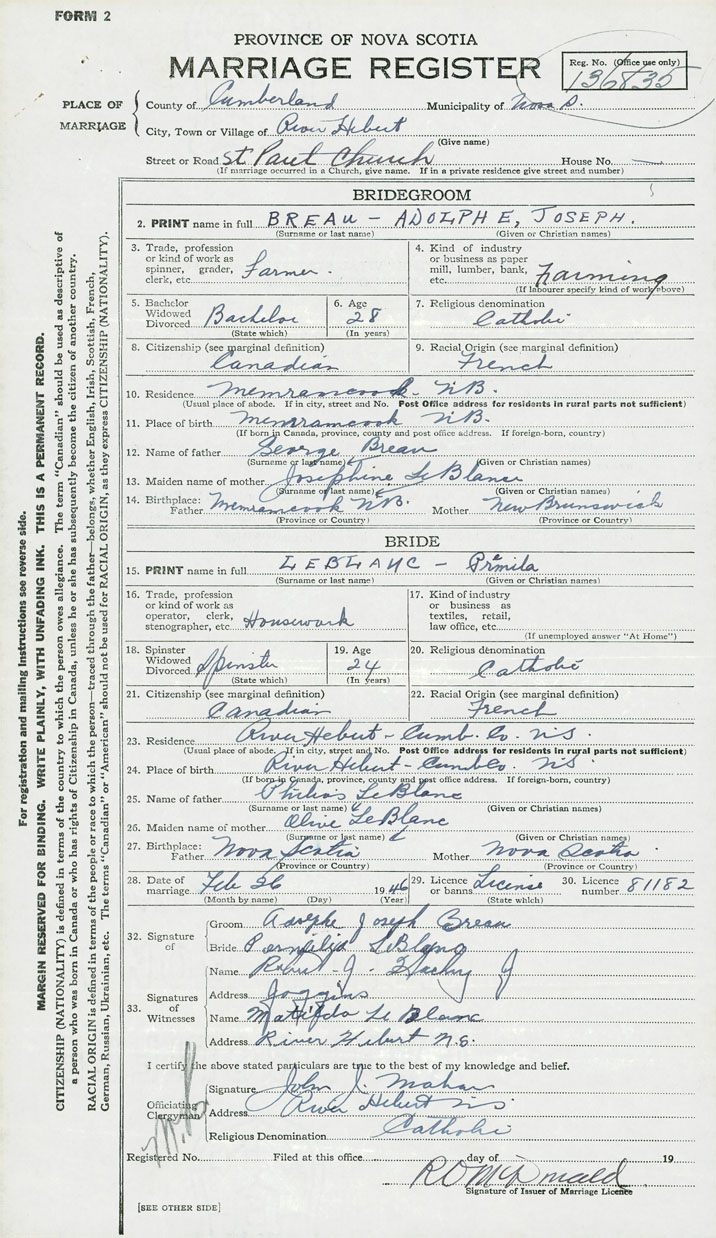 FORM 2
PROVINCE OF NOVA SCOTIA
MARRIAGE REGISTER
Reg. No. (Office use only)
136835
PLACE OF MARRIAGE
County of Cumberland Municipality of Nova S.
City, Town or Village of River Hebert
(Give name)
Street or Road St. Paul Church House No. —
(If marriage occurred in a Church, give name. If in a private residence give street and number)
BRIDEGROOM
2. PRINT name in full BREAU - ADOLPHE, JOSEPH.
(Surname or last name) (Given or Christian names)
3. Trade, profession or kind of work as spinner, grader, clerk, etc. Farmer.
4. Kind of industry or business as paper mill, lumber, bank, etc. Farming
(If labourer specify kind of work above)
5. Bachelor Widowed Divorced Bachelor
(State which)
6. Age 28
(In years)
7. Religious denomination Catholic
8. Citizenship (see marginal definition) Canadian
9. Racial Origin (see marginal definition) French
10. Residence Memramcook N.B.
(Usual place of abode. If in city, street and No. Post Office address for residents in rural parts not sufficient)
11. Place of birth Memramcook N.B.
(If born in Canada, province, county and post office address. If foreign-born, country)
12. Name of father George Breau
(Surname or last name) (Given or Christian names)
13. Maiden name of mother Josephine LeBlanc
(Surname or last name) (Given or Christian names)
14. Birthplace: Father Memramcook N.B. Mother New Brunswick
(Province or Country) (Province or Country)
BRIDE
15. PRINT name in full LEBLANC -
(Surname or last name) (Given or Christian names)
16. Trade, profession or kind of work as operator, clerk, stenographer, etc. Housework
17. Kind of industry or business as textiles, retail, law office, etc.
(If unemployed answer "At Home")
18. Spinster Widowed Divorced Spinster
(State which)
19. Age 24
(In years)
20. Religious denomination Catholic
21. Citizenship (see marginal definition) Canadian
22. Racial Origin (see marginal definition) French
23. Residence River Hebert - Cumb. Co. N.S.
(Usual place of abode. If in city, street and No. Post Office address for residents in rural parts not sufficient)
24. Place of birth River Hebert - Cumb Co. N.S.
(If born in Canada, province, county and post office address. If foreign-born, country)
25. Name of father LeBlanc
(Surname or last name) (Given or Christian names)
26. Maiden name of mother Olive LeBlanc
(Surname or last name) (Given or Christian names)
27. Birthplace: Father Nova Scotia Mother Nova Scotia
(Province or Country) (Province or Country)
28. Date of marriage Feb 26 1946
(Month by name) (Day) (Year)
29. Licence or banns License
(State which)
30. Licence number 81182
32. Signature of
Groom Adolphe Joseph Breau
Bride LeBlanc
33. Signatures of Witnesses
Name Robert J.
Address Joggins
Name Matilda Le Blanc
Address River Hebert N.S.
I certify the above stated particulars are true to the best of my knowledge and belief.
Officiating Clergyman
Signature John J. Mahar
Address River Hebert N.S.
Religious Denomination Catholic
Registered No. Filed at this office day of 19
Signature of Issuer of Marriage Licence
[SEE OTHER SIDE]
For registration and mailing instructions see reverse side.
MARGIN RESERVED FOR BINDING. WRITE PLAINLY, WITH UNFADING INK. THIS IS A PERMANENT RECORD.
CITIZENSHIP (NATIONALITY) is defined in terms of the country to which the person owes allegiance. The term "Canadian" should be used as descriptive of
a person who was born in Canada or who has rights of Citizenship in Canada, unless he or she has subsequently become the citizen of another country.
RACIAL ORIGIN is defined in terms of the people or race to which the person—traced through the father—belongs, whether English, Irish, Scottish, French,
German, Russian, Ukrainian, etc. The terms "Canadian" or "American" should not be used for RACIAL ORIGIN, as they express CITIZENSHIP (NATIONALITY).